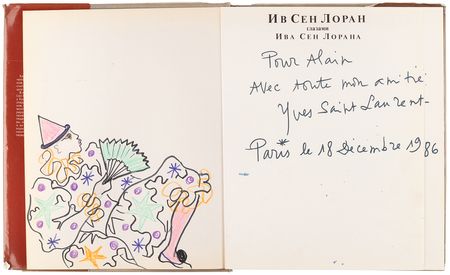 Ив Сен Лоран
глазами
Ива Сен Лорана
Pour Alain
Avec toute mon amitié
Yves Saint Laurent-
Paris le 18 Décembre 1986